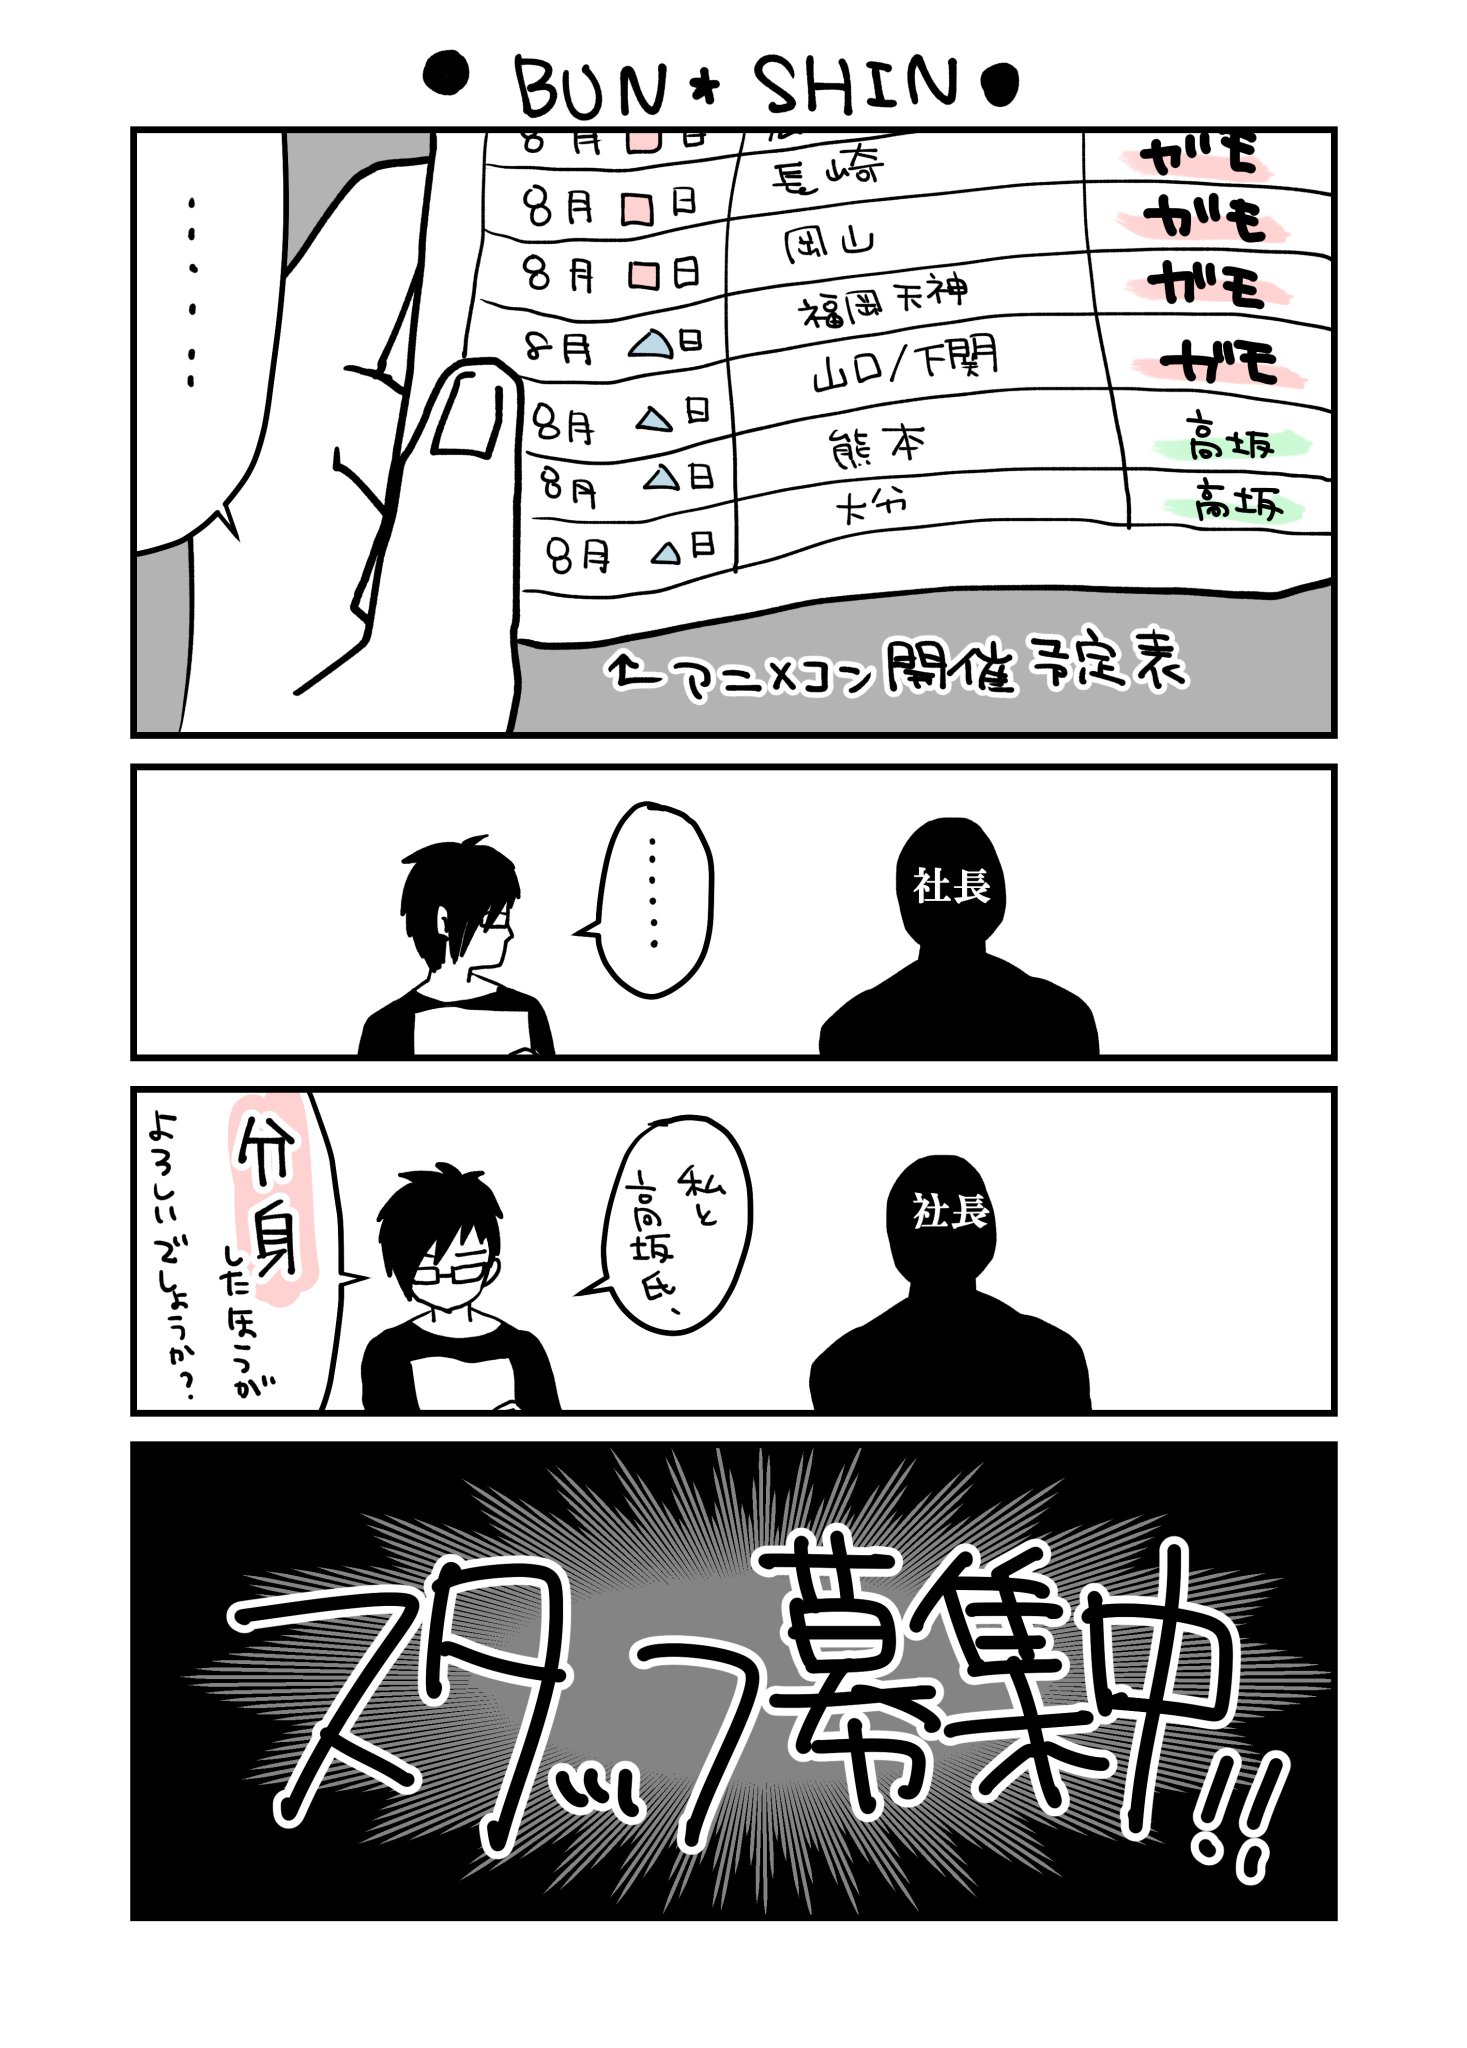 ●BUN*SHIN●
8月□日
長崎 ガモ
8月□日
岡山 ガモ
8月□日
福岡天神 ガモ
8月△日
山口/下関 ガモ
8月△日
熊本 高坂
8月△日
大分 高坂
8月△日
……
←アニメコン開催予定表
社長
……
社長
私と
高坂氏、
分身
したほうが
よろしいでしょうか?
スタッフ募集中!!